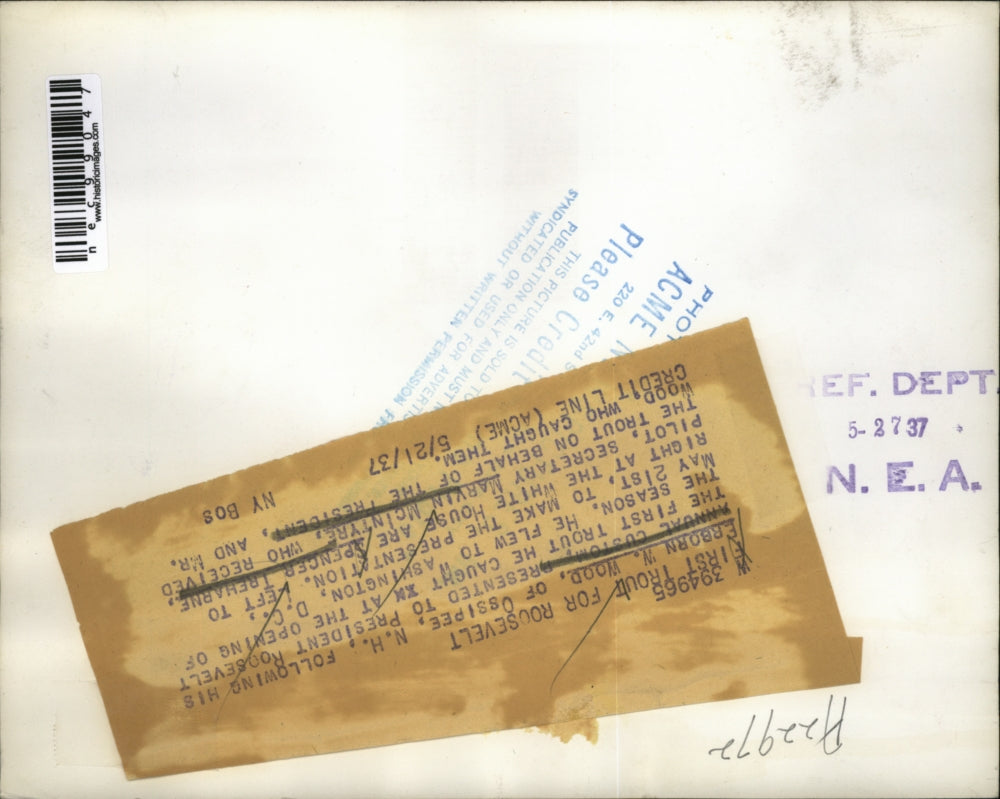 nec99047
www.historicimages.com
PHOT
ACME N
220 E. 42nd S
Please Credit
THIS PICTURE IS SOLD TO
PUBLICATION ONLY AND MUST N
SYNDICATED OR USED FOR ADVERTIS
WITHOUT WRITTEN PERMISSION FR
394965
FIRST TROUT FOR ROOSEVELT
N. WOOD, OF OSSIPEE, N.H., FOLLOWING HIS
ANNUAL CUSTOM, PRESENTED TO PRESIDENT ROOSEVELT
THE FIRST TROUT HE CAUGHT AT THE OPENING OF
THE SEASON. HE FLEW TO WASHINGTON, D.C.
MAY 21ST, TO MAKE THE PRESENTATION. LEFT TO
RIGHT AT THE WHITE HOUSE ARE SPENCER TREHARNE,
PILOT, SECRETARY MARVIN MCINTYRE, WHO RECEIVED
THE TROUT ON BEHALF OF THE PRESIDENT, AND MR.
WOOD, WHO CAUGHT THEM.
CREDIT LINE (ACME) 5/21/37 NY BOS
REF. DEPT.
5-27 37
N. E. A.